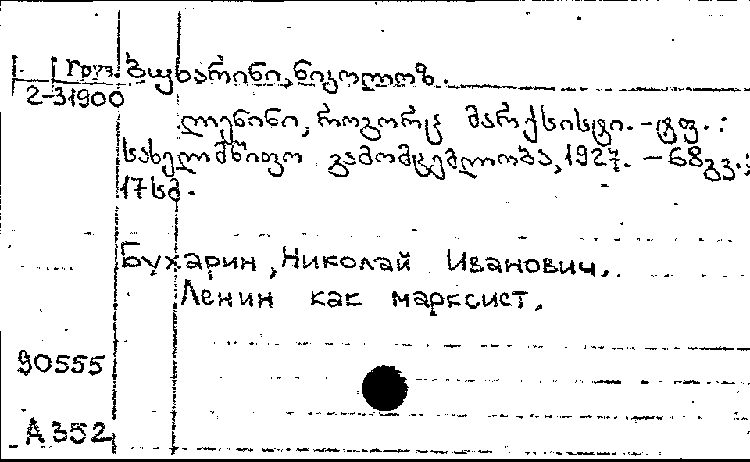 Груз. ბუხარინი, ნიკოლოზ.
2-31900
ლენინი, როგორც მარქსისტი. - ტფ. :
სახელმწიფო გამომცემლობა, 1927. - 68გვ.;
17სმ.
Бухарин, Николай Иванович.
Ленин как марксист.
90555
А352